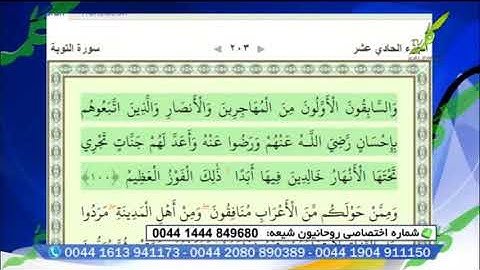 الجزء الحادي عشر ◄ ٢٠٣ ► سورة التوبة
وَالسَّابِقُونَ الْأَوَّلُونَ مِنَ الْمُهَاجِرِينَ وَالْأَنصَارِ وَالَّذِينَ اتَّبَعُوهُم
بِإِحْسَانٍ رَّضِيَ اللَّـهُ عَنْهُمْ وَرَضُوا عَنْهُ وَأَعَدَّ لَهُمْ جَنَّاتٍ تَجْرِي
تَحْتَهَا الْأَنْهَارُ خَالِدِينَ فِيهَا أَبَدًا ۚ ذَٰلِكَ الْفَوْزُ الْعَظِيمُ ﴿١٠٠﴾
وَمِمَّنْ حَوْلَكُم مِّنَ الْأَعْرَابِ مُنَافِقُونَ ۖ وَمِنْ أَهْلِ الْمَدِينَةِ ۖ مَرَدُوا
شماره اختصاصی روحانیون شیعه: 0044 1444 849680
0044 1613 941173 - 0044 2080 890389 - 0044 1904 911150